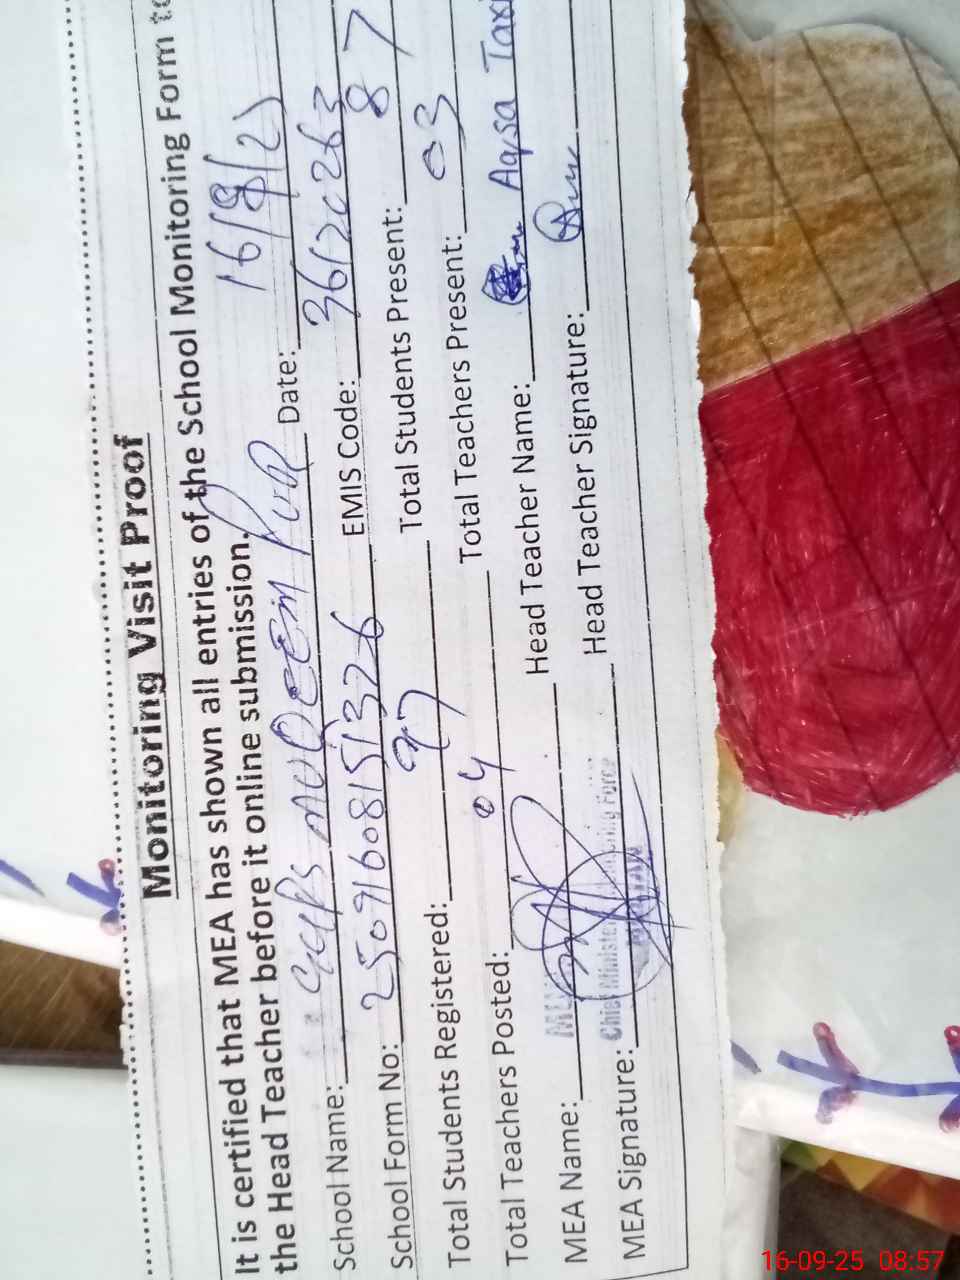 Monitoring Visit Proof
It is certified that MEA has shown all entries of the School Monitoring Form to
the Head Teacher before it online submission.
School Name: Date: 16/9/25
School Form No: 25091608151326 EMIS Code: 36120263
Total Students Registered: 97 Total Students Present: 87
Total Teachers Posted: 04 Total Teachers Present: 03
MEA Name: Head Teacher Name: Aqsa
MEA Signature: Chief Minister Monitoring Force Head Teacher Signature:
16-09-25 08:57